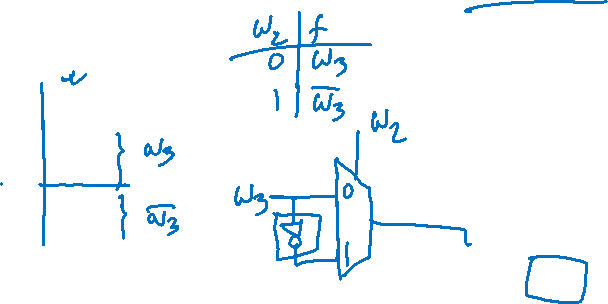 w2 | f
0 | w3
1 | w̅3
w3
w̅3
w2
w3
0
1